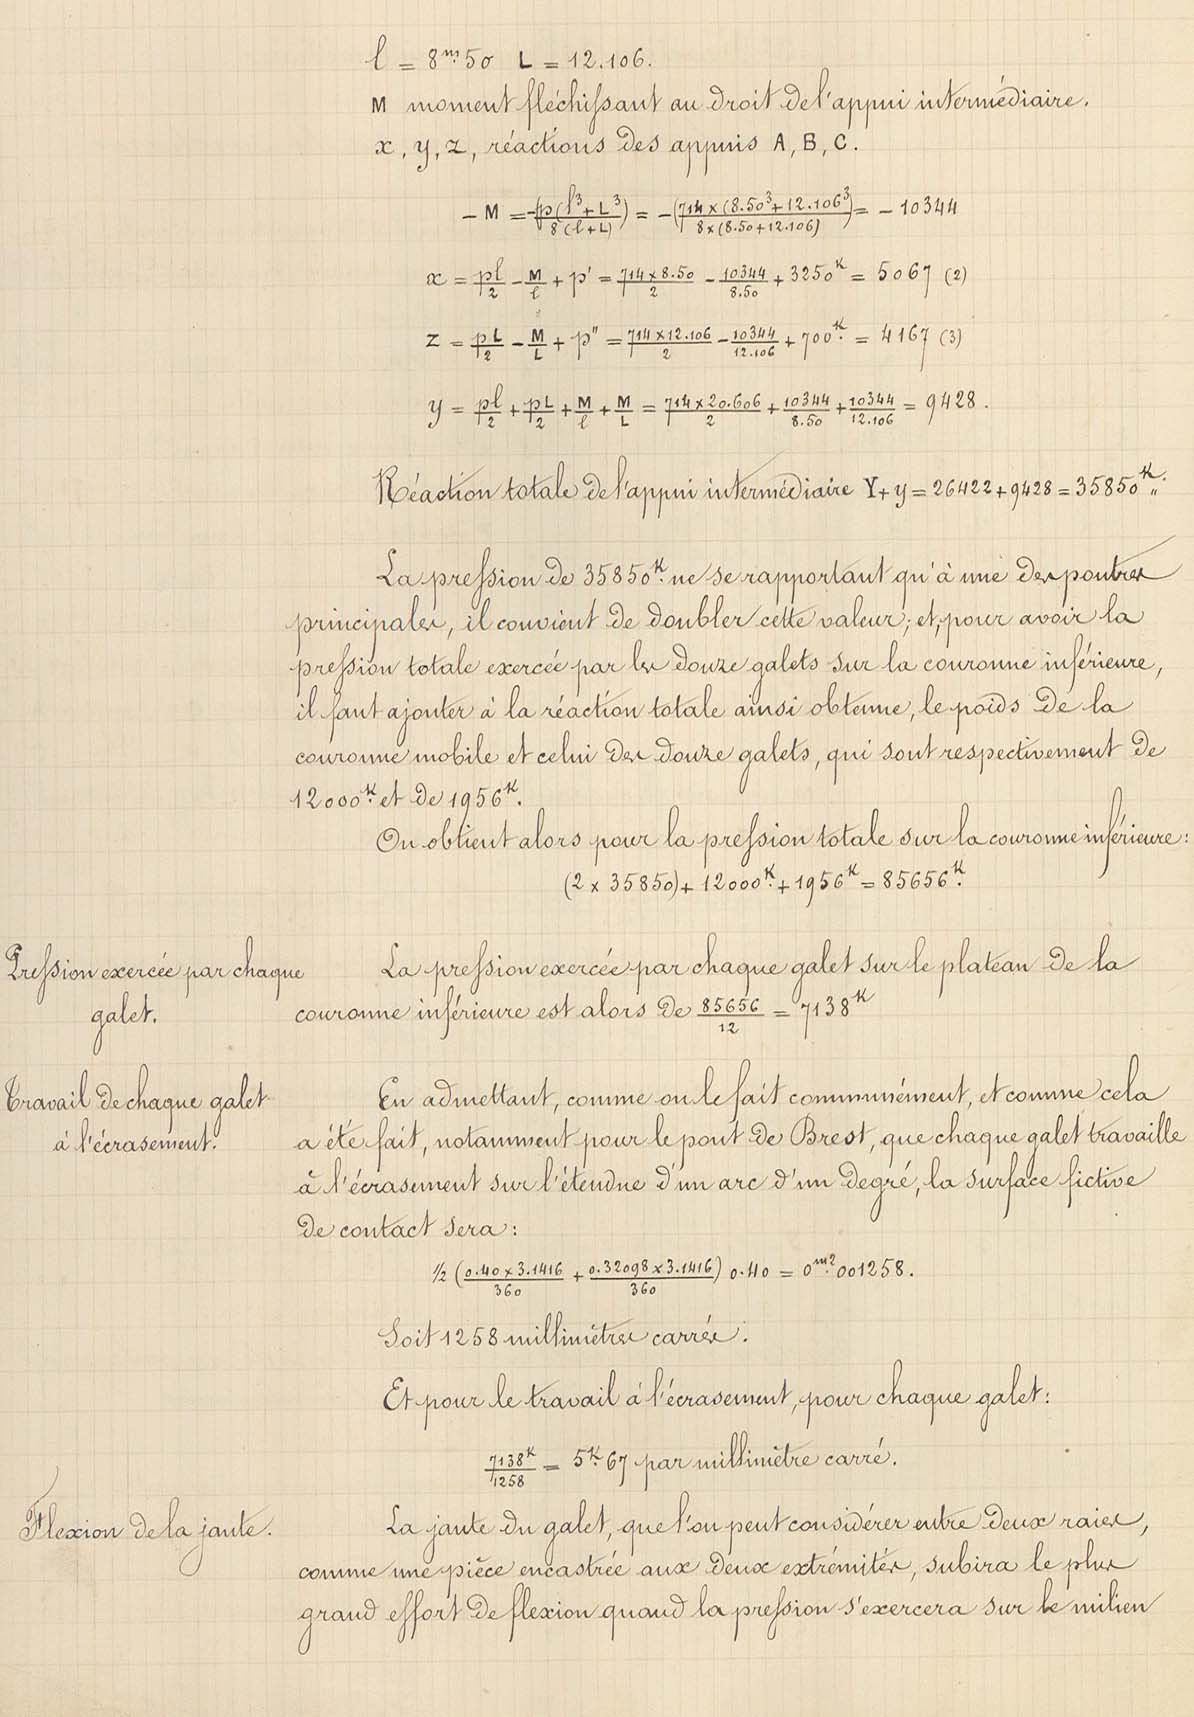 l = 8m.50 L = 12.106.
M moment fléchissant au droit de l'appui intermédiaire.
x, y, z, réactions des appuis A, B, C.
- M = -(p(l³+L³)/8(l+L)) = -(714×(8.50³+12.106³)/8×(8.50+12.106)) = - 10344
x = pl/2 - M/l + p' = 714×8.50/2 - 10344/8.50 + 3250K = 5067 (2)
z = pL/2 - M/L + p" = 714×12.106/2 - 10344/12.106 + 700K. = 4167 (3)
y = pl/2 + pL/2 + M/l + M/L = 714×20.606/2 + 10344/8.50 + 10344/12.106 = 9428.
Réaction totale de l'appui intermédiaire Y+y = 26422+9428 = 35850K.
La pression de 35850K. ne se rapportant qu'à une des poutres
principales, il convient de doubler cette valeur; et, pour avoir la
pression totale exercée par les douze galets sur la couronne inférieure,
il faut ajouter à la réaction totale ainsi obtenue, le poids de la
couronne mobile et celui des douze galets, qui sont respectivement de
12000K. et de 1956K.
On obtient alors pour la pression totale sur la couronne inférieure:
(2 × 35850) + 12000K. + 1956K = 85656K.
Pression exercée par chaque
galet.
La pression exercée par chaque galet sur le plateau de la
couronne inférieure est alors de 85656/12 = 7138K
Travail de chaque galet
à l'écrasement.
En admettant, comme on le fait communément, et comme cela
a été fait, notamment pour le pont de Brest, que chaque galet travaille
à l'écrasement sur l'étendue d'un arc d'un degré, la surface fictive
de contact sera:
½ (0.40×3.1416/360 + 0.32098×3.1416/360) 0.40 = 0m².001258.
Soit 1258 millimètres carrés.
Et pour le travail à l'écrasement, pour chaque galet:
7138K/1258 = 5K.67 par millimètre carré.
Flexion de la jante.
La jante du galet, que l'on peut considérer entre deux raies,
comme une pièce encastrée aux deux extrémités, subira le plus
grand effort de flexion quand la pression s'exercera sur le milieu